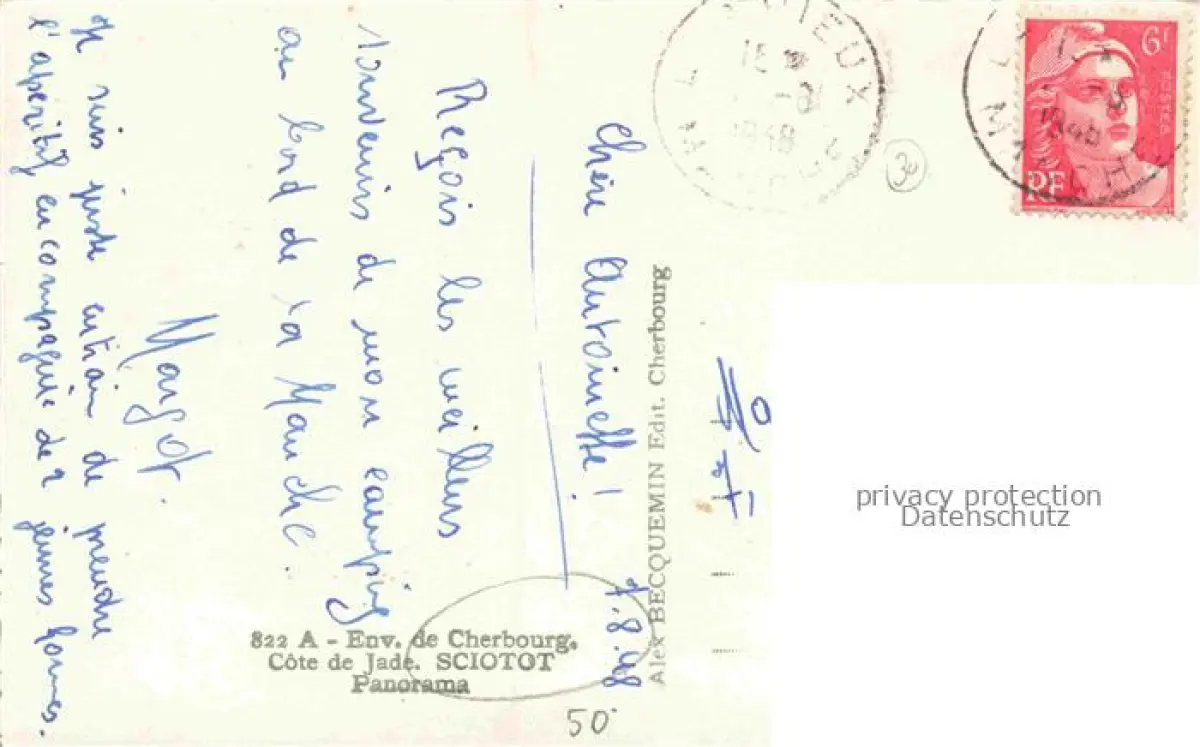 7.8.48
Chère Antoinette!
Reçois les meilleurs
souvenirs de mon camping
au bord de la Manche.
Margot.
Je suis juste entrain de prendre
l'aperitif en compagnie de 2 jeunes hommes.
822 A - Env. de Cherbourg.
Côte de Jade. SCIOTOT
Panorama
Alex BECQUEMIN Edit. Cherbourg
50
30
6F
POSTES
RF
1948
MANCHE
1948
privacy protection
Datenschutz